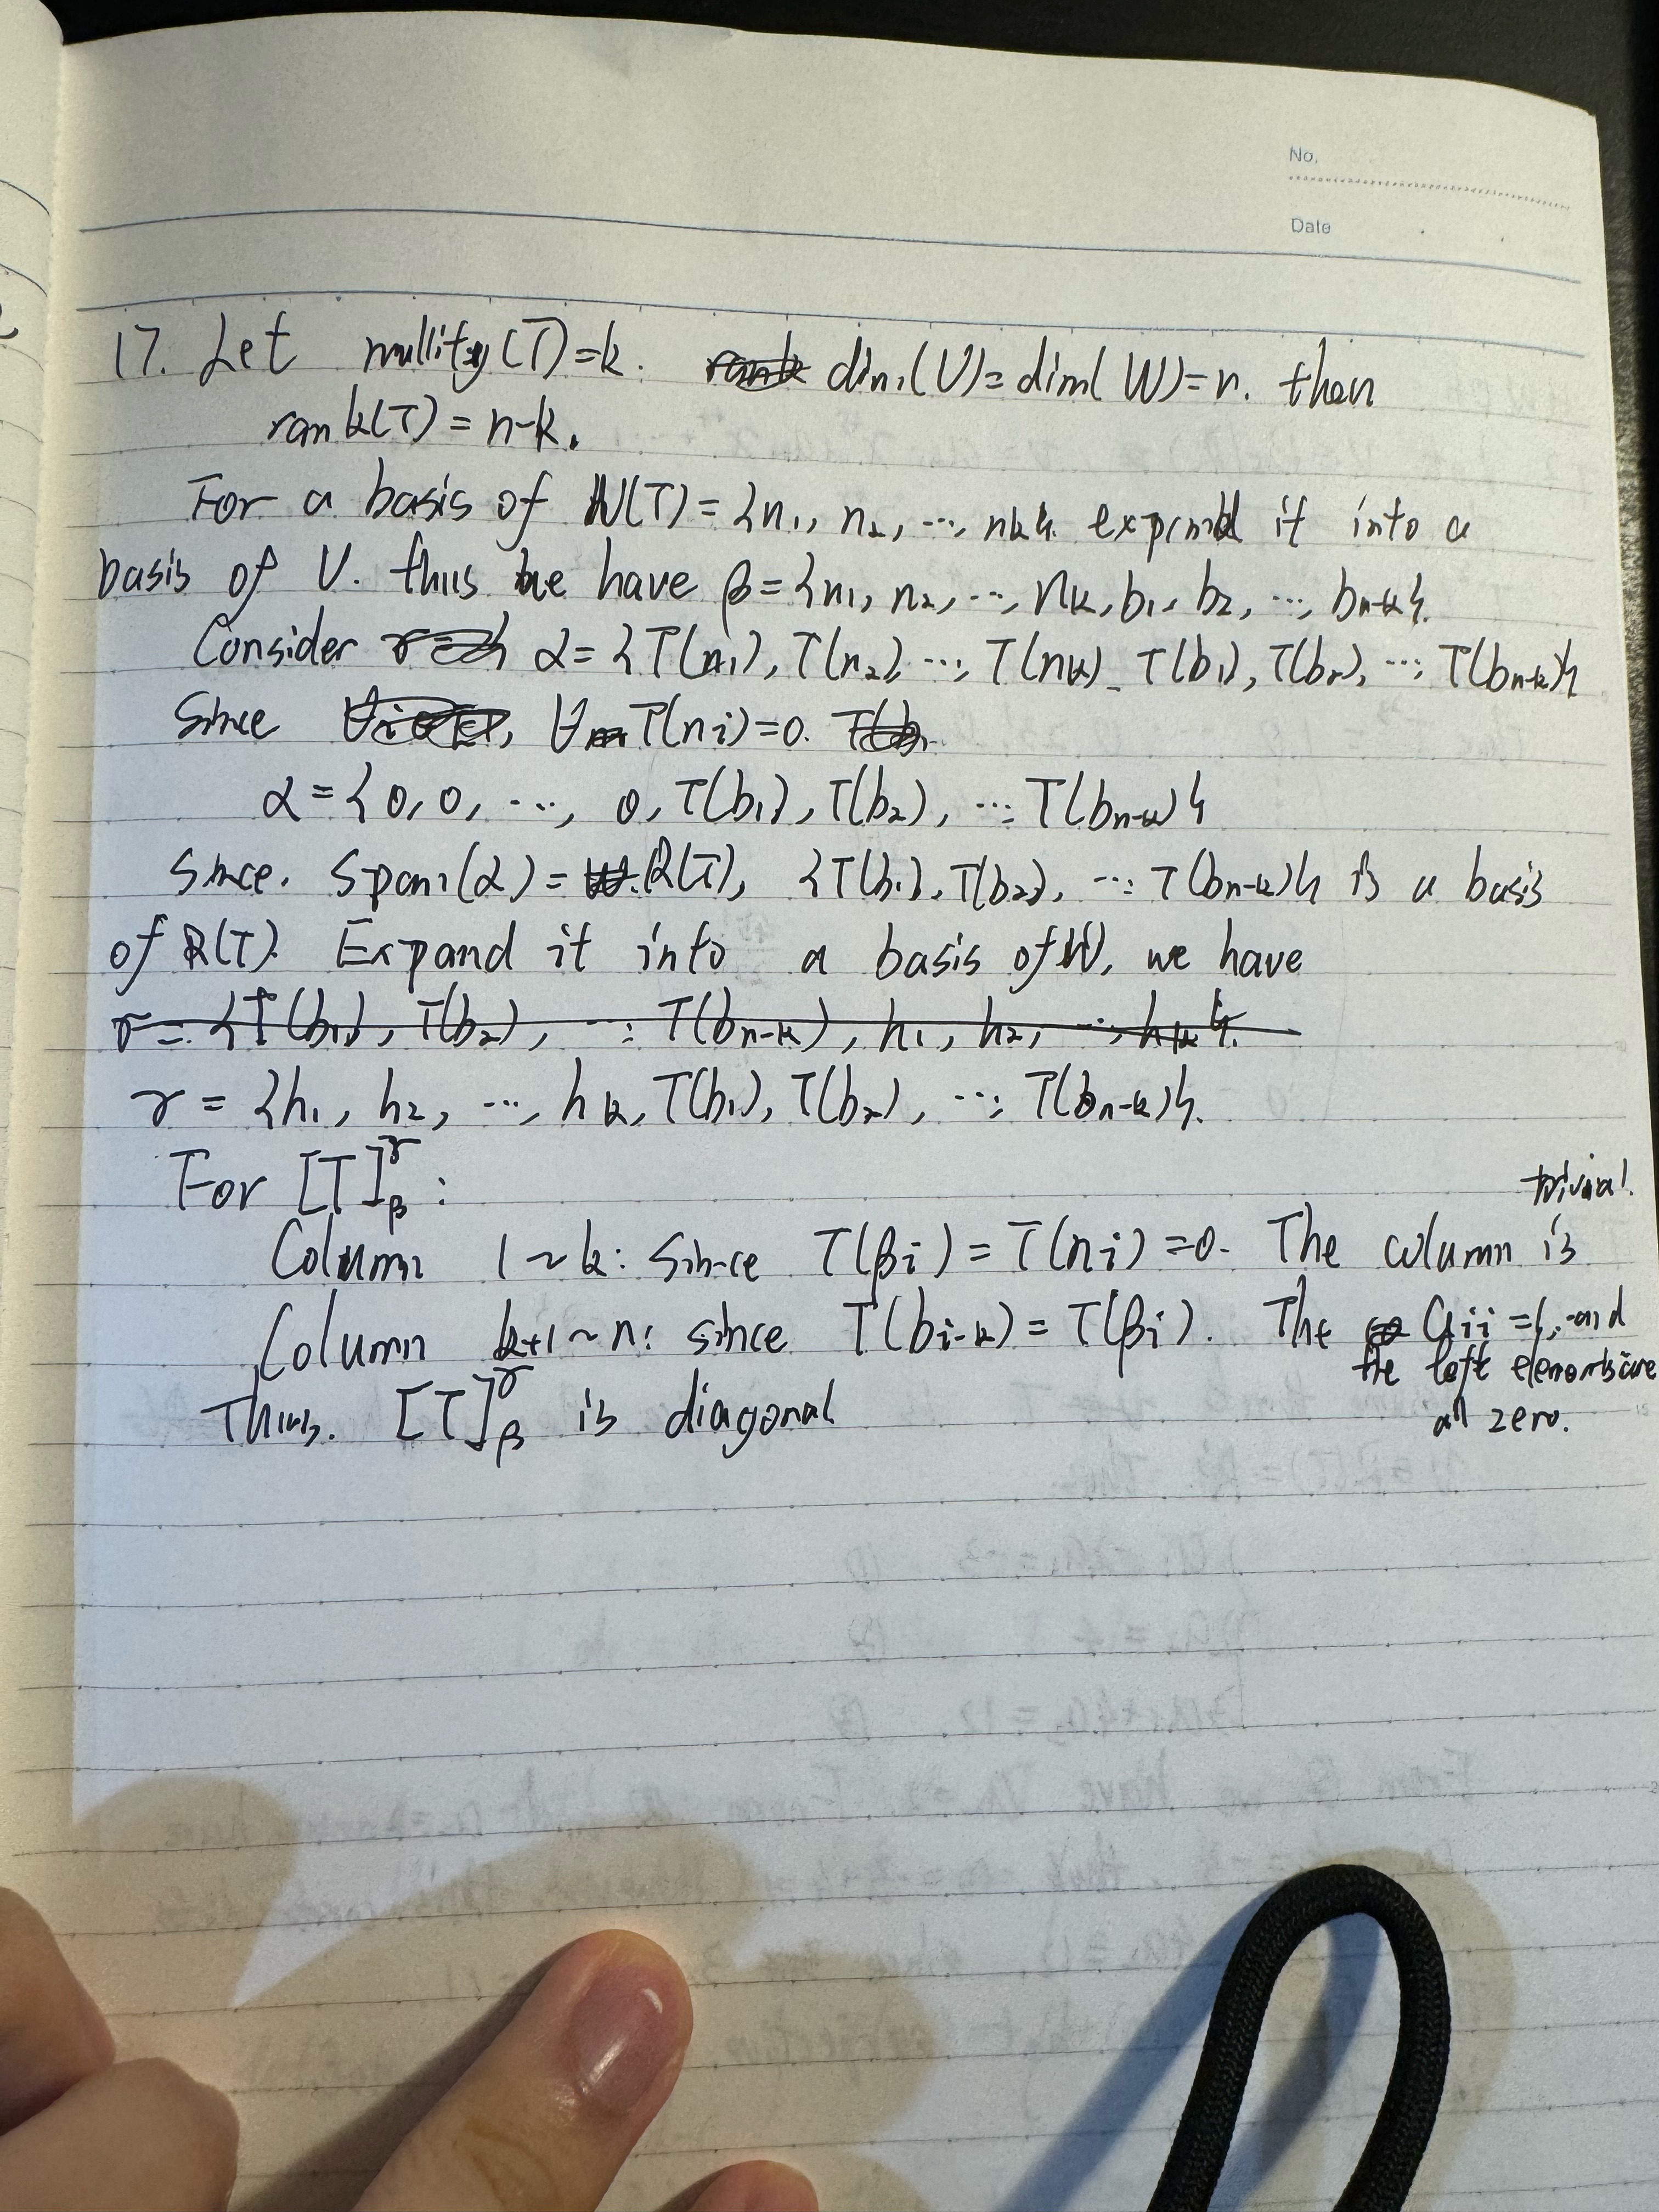 No.
Date
17. Let nullity(T)=k. dim(V)=dim(W)=n. then
rank(T)=n-k.
For a basis of N(T)={n₁, n₂, ⋯, nk}. expand it into a
basis of V. thus we have β={n₁, n₂, ⋯, nk, b₁, b₂, ⋯, bn-k}.
Consider α={T(n₁), T(n₂), ⋯, T(nk), T(b₁), T(b₂), ⋯, T(bn-k)}
Since ∀ T(ni)=0.
α={0, 0, ⋯, 0, T(b₁), T(b₂), ⋯, T(bn-k)}
Since. Span(α)=R(T), {T(b₁), T(b₂), ⋯, T(bn-k)} is a basis
of R(T). Expand it into a basis of W, we have
γ={T(b₁), T(b₂), ⋯, T(bn-k), h₁, h₂, ⋯, hk}.
γ={h₁, h₂, ⋯, hk, T(b₁), T(b₂), ⋯, T(bn-k)}.
For [T]βγ:
Column 1~k: Since T(βi)=T(ni)=0. The column is trivial.
Column k+1~n: since T(bi-k)=T(βi). The aii=1, and
the left elements are
all zero.
Thus. [T]βγ is diagonal